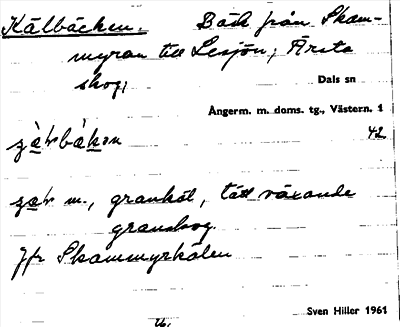 Kälbäcken. Bäck från Skam-
myran till Lesjön; Ärsta
skog,
Dals sn
Ångerm. m. doms. tg., Västern. 1
42
m., granköl, tätt växande
granskog.
Jfr Skammyrkälen
Sven Hiller 1961